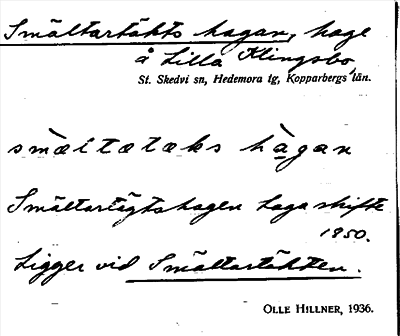 Smältartäkts hagan, hage
å Lilla Klingsbo,
St. Skedvi sn, Hedemora tg, Kopparbergs län.
smæltætæks hàgan
Smältartägtshagen Laga skifte
1850.
Ligger vid Smältartäkten.
OLLE HILLNER, 1936.